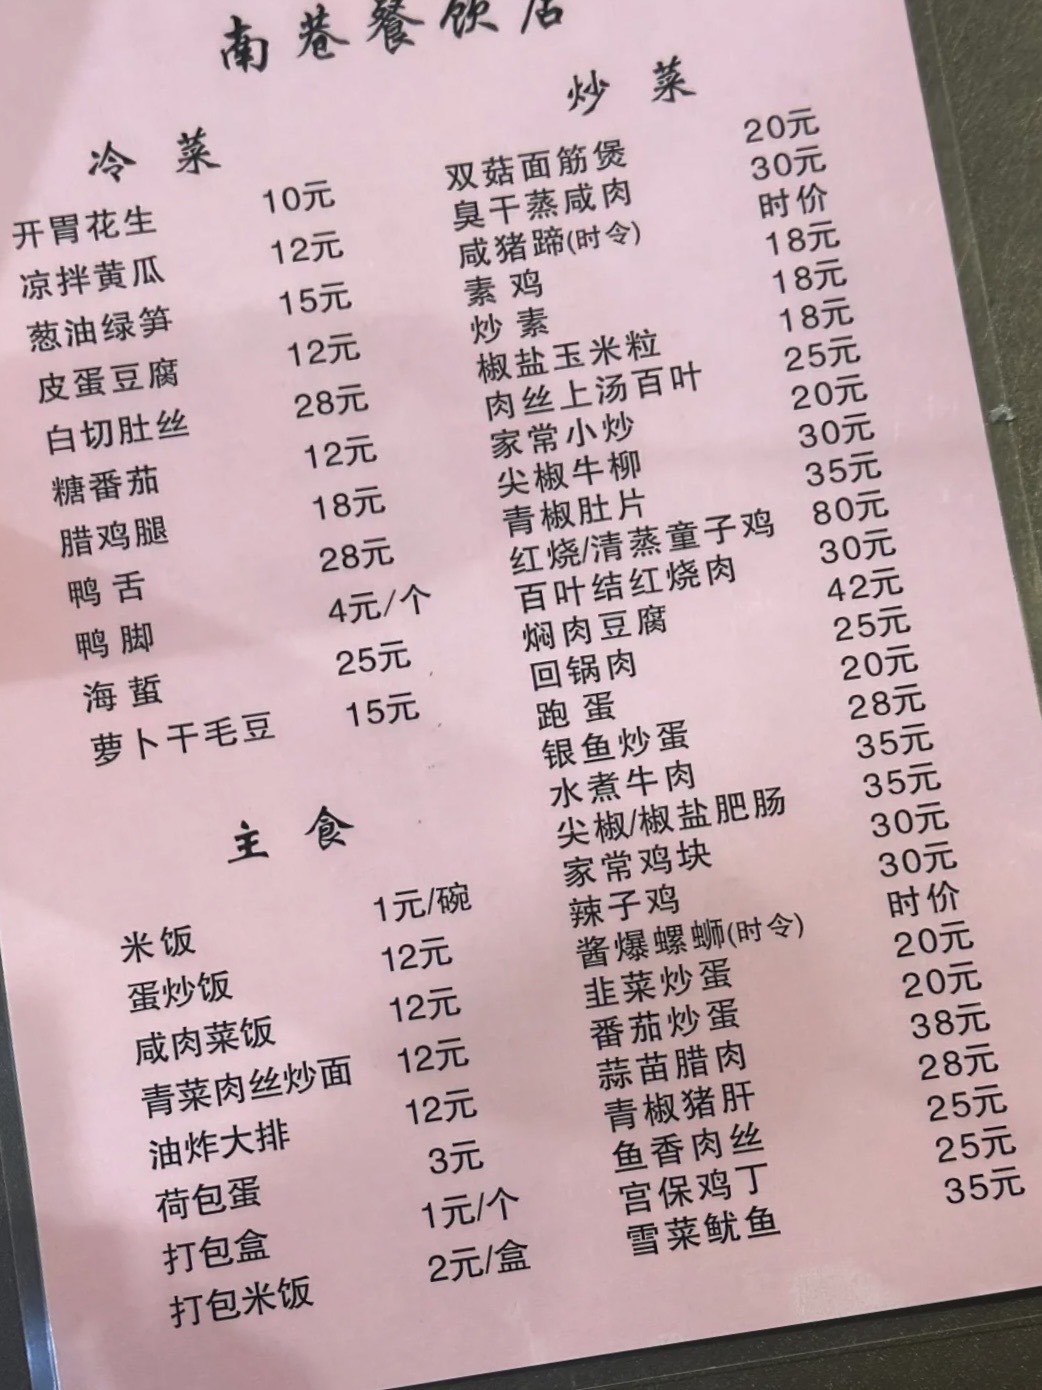 南巷餐饮店
冷菜
开胃花生 10元
凉拌黄瓜 12元
葱油绿笋 15元
皮蛋豆腐 12元
白切肚丝 28元
糖番茄 12元
腊鸡腿 18元
鸭舌 28元
鸭脚 4元/个
海蜇 25元
萝卜干毛豆 15元
主食
米饭 1元/碗
蛋炒饭 12元
咸肉菜饭 12元
青菜肉丝炒面 12元
油炸大排 12元
荷包蛋 3元
打包盒 1元/个
打包米饭 2元/盒
炒菜
双菇面筋煲 20元
臭干蒸咸肉 30元
咸猪蹄(时令) 时价
素鸡 18元
炒素 18元
椒盐玉米粒 18元
肉丝上汤百叶 25元
家常小炒 20元
尖椒牛柳 30元
青椒肚片 35元
红烧/清蒸童子鸡 80元
百叶结红烧肉 30元
焖肉豆腐 42元
回锅肉 25元
跑蛋 20元
银鱼炒蛋 28元
水煮牛肉 35元
尖椒/椒盐肥肠 35元
家常鸡块 30元
辣子鸡 30元
酱爆螺蛳(时令) 时价
韭菜炒蛋 20元
番茄炒蛋 20元
蒜苗腊肉 38元
青椒猪肝 28元
鱼香肉丝 25元
宫保鸡丁 25元
雪菜鱿鱼 35元